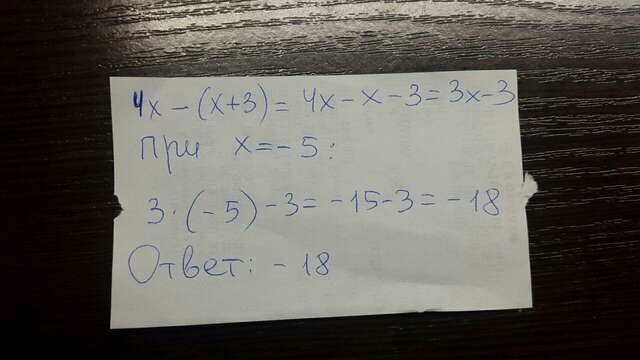 4x - (x+3) = 4x - x - 3 = 3x - 3
при x = - 5:
3 · (-5) - 3 = -15 - 3 = -18
Ответ: - 18